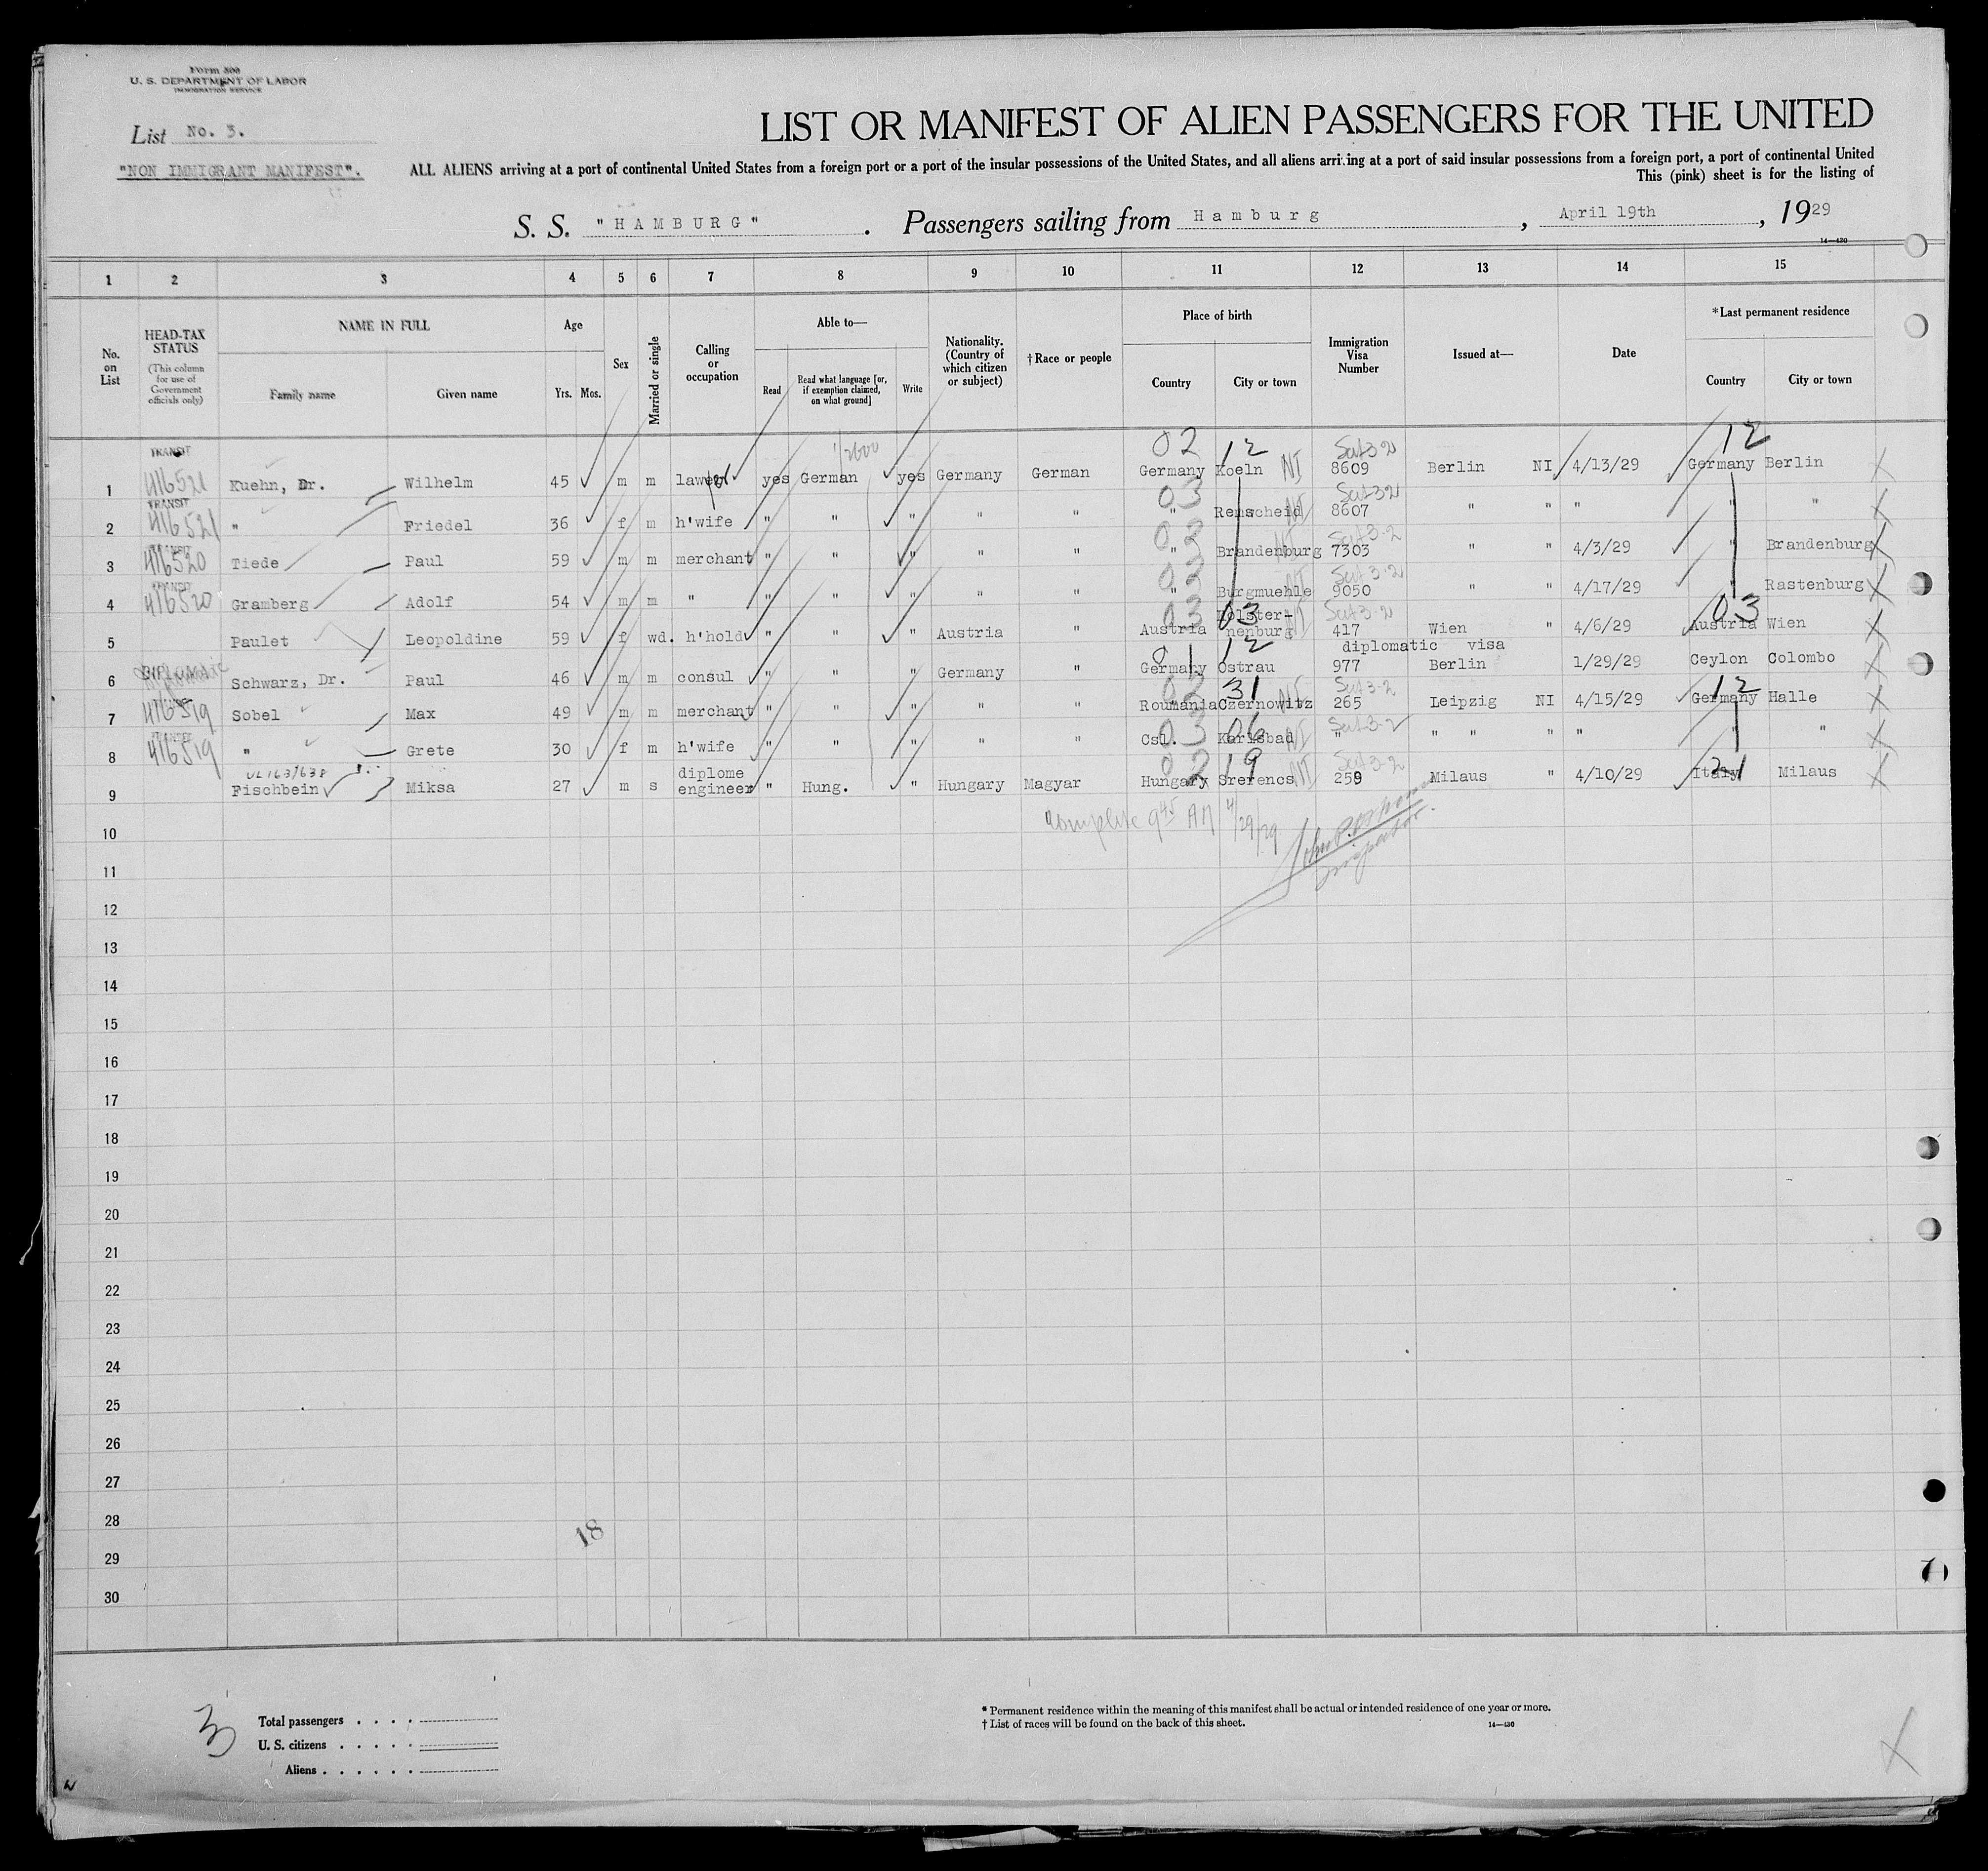 Form 500
U. S. DEPARTMENT OF LABOR
IMMIGRATION SERVICE
List No. 3.
"NON IMMIGRANT MANIFEST".
LIST OR MANIFEST OF ALIEN PASSENGERS FOR THE UNITED
ALL ALIENS arriving at a port of continental United States from a foreign port or a port of the insular possessions of the United States, and all aliens arriving at a port of said insular possessions from a foreign port, a port of continental United
This (pink) sheet is for the listing of
S. S. "HAMBURG" . Passengers sailing from Hamburg , April 19th , 1929
14—430
1 2 3 4 5 6 7 8 9 10 11 12 13 14 15
No. on List
HEAD-TAX STATUS
(This column for use of Government officials only)
NAME IN FULL
Family name Given name
Age
Yrs. Mos.
Sex
Married or single
Calling or occupation
Able to—
Read
Read what language [or, if exemption claimed, on what ground]
Write
Nationality. (Country of which citizen or subject)
†Race or people
Place of birth
Country City or town
Immigration Visa Number
Issued at—
Date
*Last permanent residence
Country City or town
02 12 12
1 TRANSIT 416521 Kuehn, Dr. Wilhelm 45 m m lawer yes German yes Germany German Germany Koeln NI 8609 Berlin NI 4/13/29 Germany Berlin
03
2 TRANSIT 416521 " Friedel 36 f m h'wife " " " " " " Remscheid 8607 " " " " "
02
3 TRANSIT 416520 Tiede Paul 59 m m merchant " " " " " " Brandenburg 7303 " " 4/3/29 " Brandenburg
02
4 TRANSIT 416520 Gramberg Adolf 54 m m " " " " " " " Burgmuehle 9050 " " 4/17/29 Rastenburg
03 03 03
5 Paulet Leopoldine 59 f wd. h'hold " " " Austria " Austria nenburg 417 Wien " 4/6/29 Austria Wien
diplomatic visa
01 12
6 Schwarz, Dr. Paul 46 m m consul " " " Germany " Germany Ostrau 977 Berlin 1/29/29 Ceylon Colombo
02 31 12
7 416519 Sobel Max 49 m m merchant " " " " " Roumania Czernowitz 265 Leipzig NI 4/15/29 Germany Halle
03 06
8 416519 " Grete 30 f m h'wife " " " " " Csl. Karlsbad " " " " " "
02 19 21
9 Fischbein Miksa 27 m s diplome engineer " Hung. " Hungary Magyar Hungary Srerencs 259 Milaus " 4/10/29 Italy Milaus
Complete 9 45 AM 4/29/29
Inspector.
10
11
12
13
14
15
16
17
18
19
20
21
22
23
24
25
26
27
28
29
30
18
71
3
Total passengers
U. S. citizens
Aliens
* Permanent residence within the meaning of this manifest shall be actual or intended residence of one year or more.
† List of races will be found on the back of this sheet.
14—430